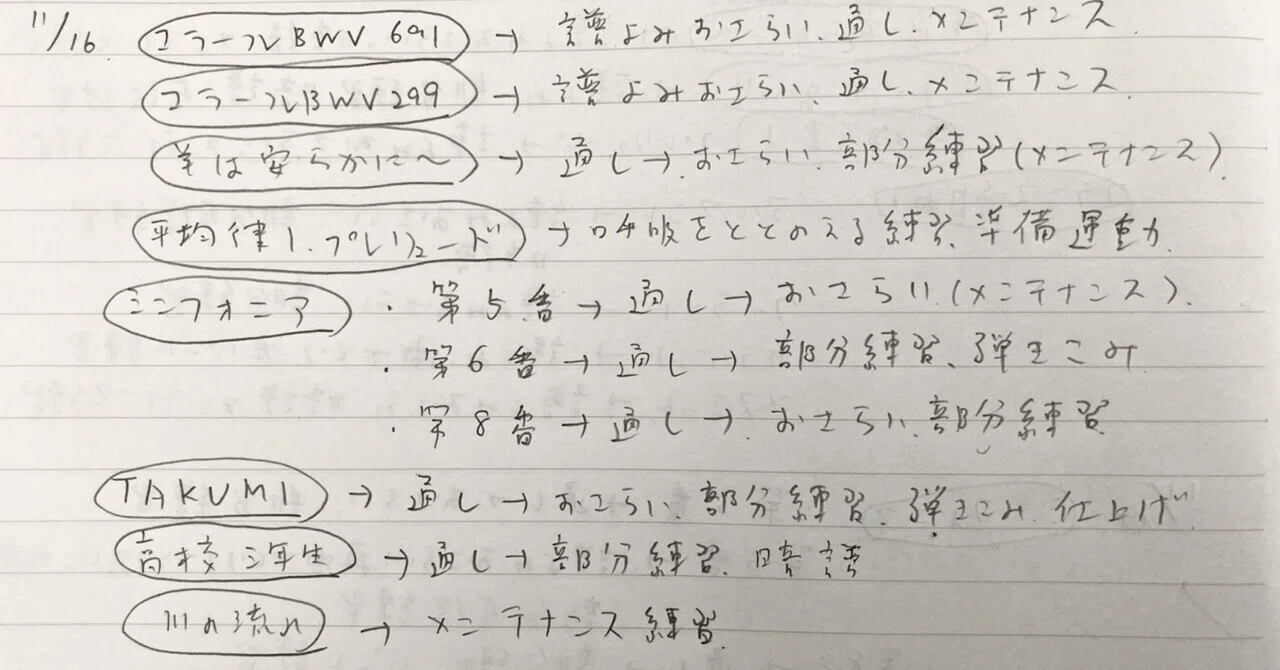 11/16 コラールBWV691 → 譜よみおさらい、通し、メンテナンス
コラールBWV299 → 譜よみおさらい、通し、メンテナンス
羊は安らかに〜 → 通し→おさらい、部分練習(メンテナンス)
平均律1.プレリュード → 呼吸をととのえる練習、準備運動
シンフォニア ・第5番→通し→おさらい(メンテナンス)
・第6番→通し→部分練習、弾きこみ
・第8番→通し→おさらい、部分練習
TAKUMI → 通し→おさらい、部分練習、弾きこみ、仕上げ
高校三年生 → 通し→部分練習、暗譜
川の流れ → メンテナンス練習